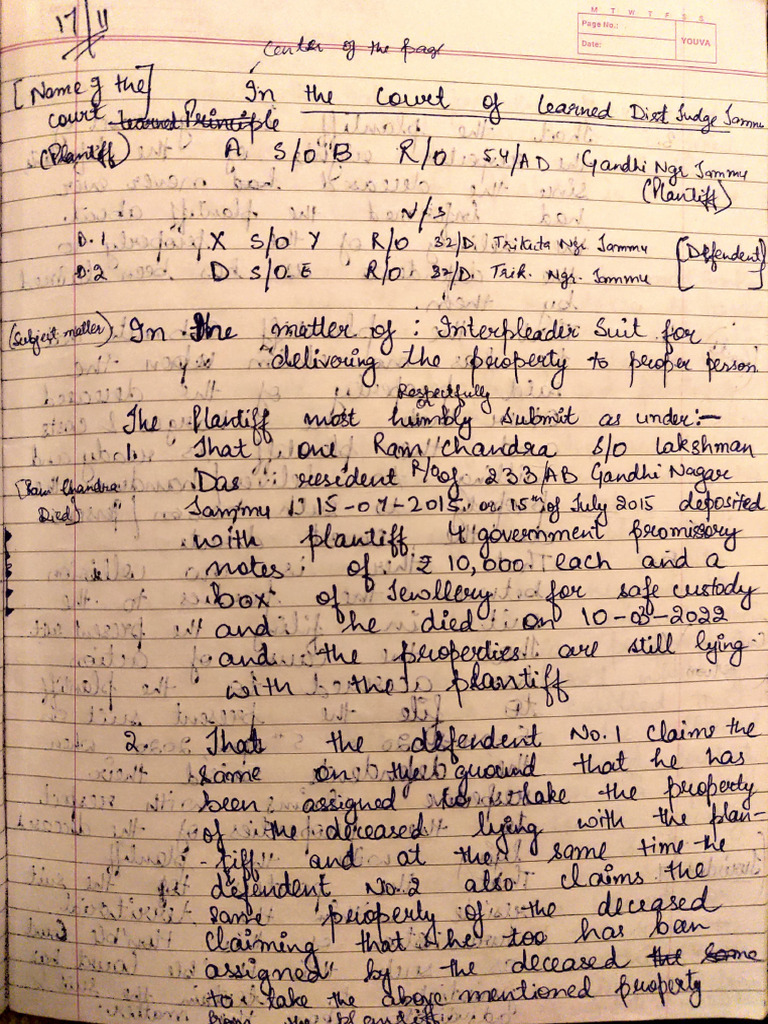 17/11
M T W T F S S
Page No.:
Date:
YOUVA
center of the page
[Name of the] In the court of learned Dist Judge Jammu
court learned Principle
(Plantiff) A S/O B R/O 54/AD Gandhi Ngr Jammu
(Plantiff)
V/S
D.1 X S/O Y R/O 32/D. Trikuta Ngr Jammu [Defendent]
D.2 D S/O E R/O 32/D. Trik. Ngr. Jammu
(Subject matter) In the matter of : Interpleader Suit for
delivering the property to proper person
Respectfully
The Plantiff most humbly submit as under:-
1. That one Ram Chandra S/O Lakshman
Das : resident R/O of 233/AB Gandhi Nagar
[Ram Chandra Jammu 15-07-2015. or 15th of July 2015 deposited
Died] with plantiff 4 government promissory
notes of ₹ 10,000 each and a
box of Jewellery for safe custody
and he died on 10-03-2022
and the properties are still lying
with the plantiff
2. That the defendent No.1 claims the
same on the ground that he has
been assigned to take the property
of the deceased lying with the plan-
-tiff and at the same time the
defendent No.2 also claims the
same property of the deceased
claiming that she too has been
assigned by the deceased the same
to take the above mentioned property
from the plantiff